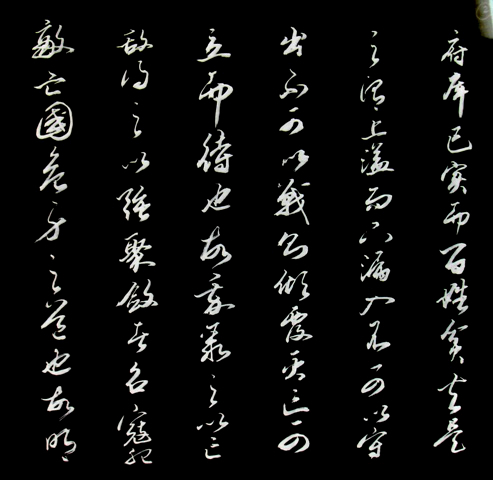 府庫已實而百姓貧夫是
之謂上溢而下漏入不可以守
出不可以戰則傾覆滅亡可
立而待也故我聚之以亡
敵得之以强聚斂者召寇肥
敵亡國危身之道也故明